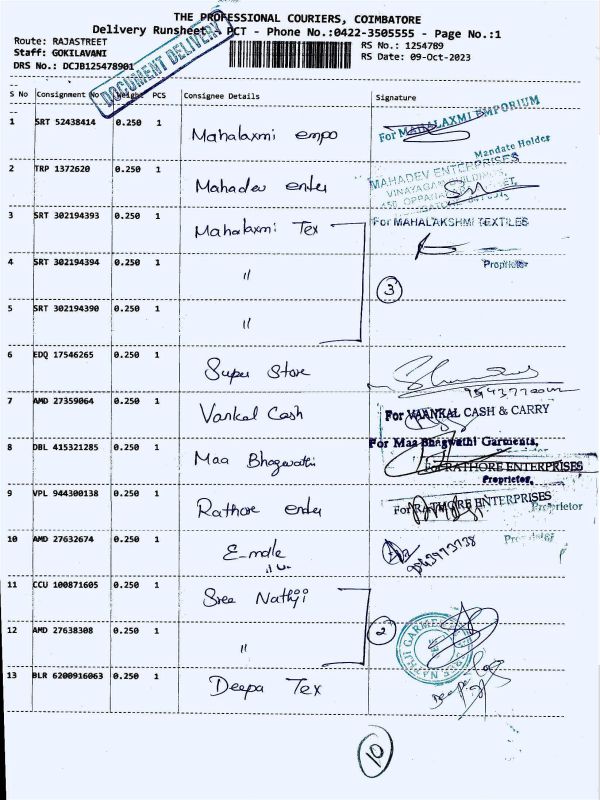 THE PROFESSIONAL COURIERS, COIMBATORE
Delivery Runsheet PCT - Phone No.:0422-3505555 - Page No.:1
Route: RAJASTREET
RS No.: 1254789
Staff: GOKILAVANI
RS Date: 09-Oct-2023
DRS No.: DCJB125478901
DOCUMENT DELIVERY
S No Consignment No Weight PCS Consignee Details Signature
1 SRT 52438414 0.250 1 Mahalaxmi empo For MAHALAXMI EMPORIUM
Mandate Holder
2 TRP 1372620 0.250 1 Mahadev enter MAHADEV ENTERPRISES
VINAYAGAR BUILDINGS,
3 SRT 302194393 0.250 1 Mahalaxmi Tex For MAHALAKSHMI TEXTILES
Proprietor
4 SRT 302194394 0.250 1 "
3
5 SRT 302194390 0.250 1 "
6 EDQ 17546265 0.250 1 Super Store
7 AMD 27359064 0.250 1 Vankal Cash For VAANKAL CASH & CARRY
8 DBL 415321285 0.250 1 Maa Bhagwathi For Maa Bhagwathi Garments,
For RATHORE ENTERPRISES
Proprietor
9 VPL 944300138 0.250 1 Rathore enter For RATHORE ENTERPRISES
Proprietor
10 AMD 27632674 0.250 1 E-mdle
11 CCU 100871605 0.250 1 Sree Nathji
2
12 AMD 27638308 0.250 1 "
13 BLR 6200916063 0.250 1 Deepa Tex
Deepa
10